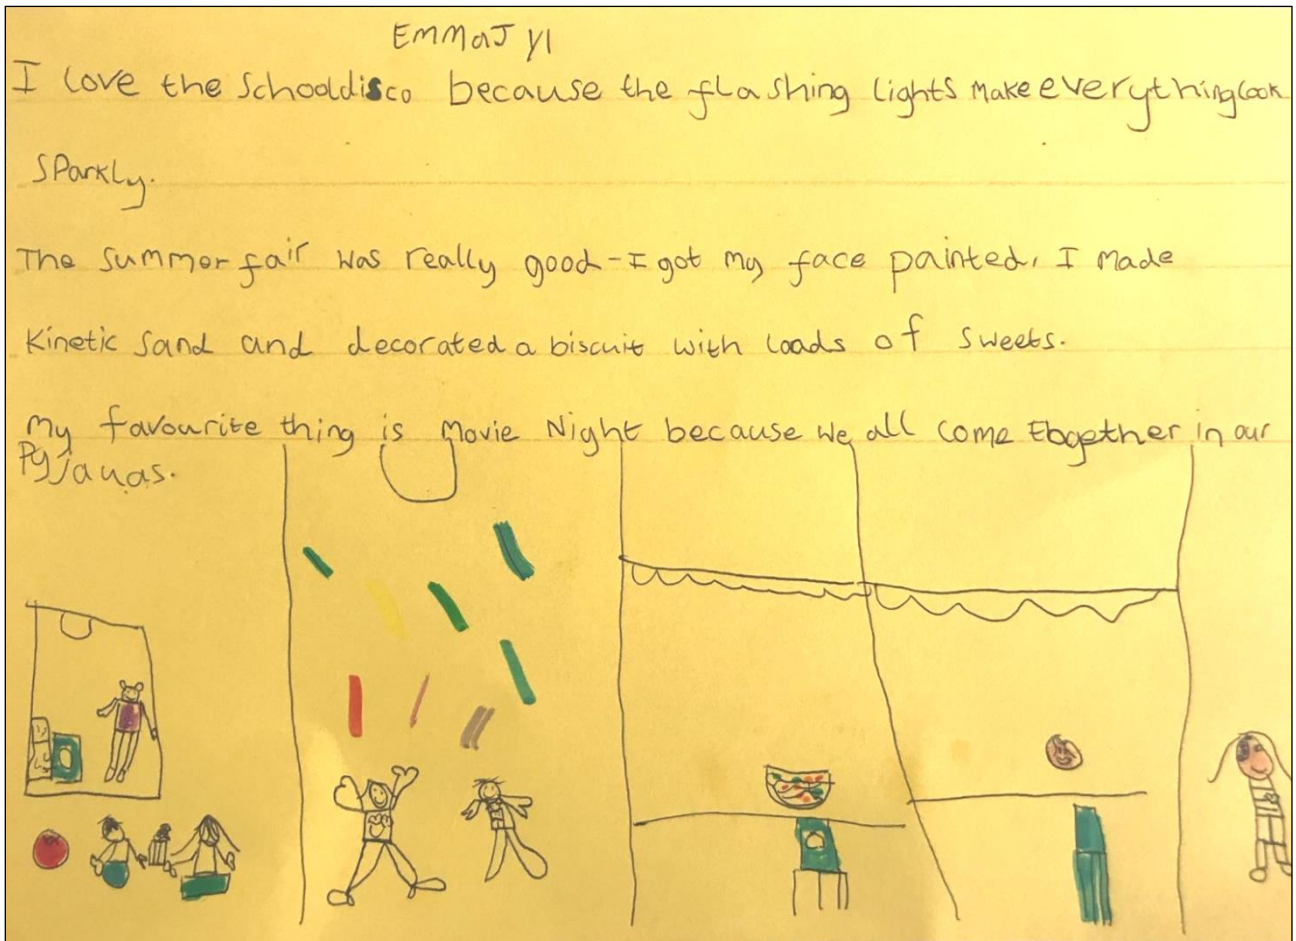 EmmaJ Y1
I love the Schooldisco because the flashing lights make everything look
sparkly.
The summer fair was really good - I got my face painted, I made
Kinetic sand and decorated a biscuit with loads of sweets.
My favourite thing is Movie Night because we all come together in our
Pyjamas.